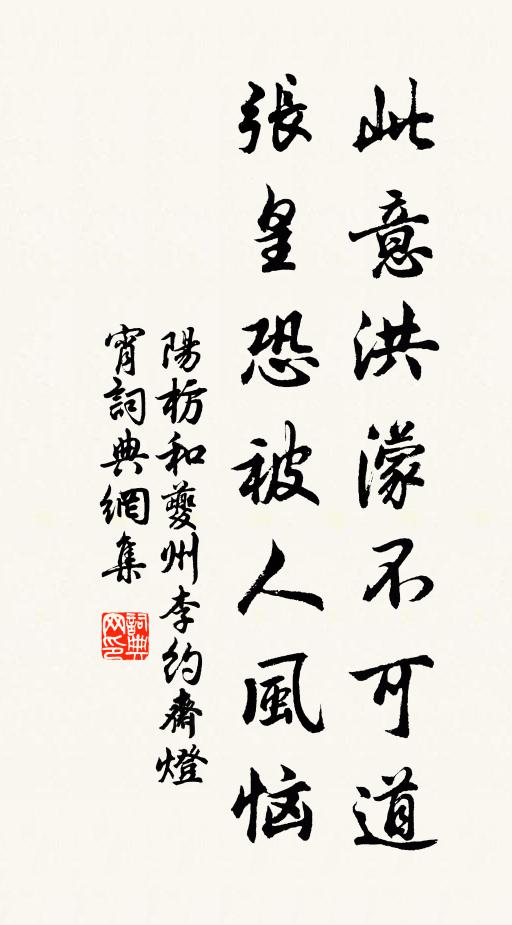 此意洪濛不可道
張皇恐被人風恼
陽枋和夔州李約齋燈
宵詞典網集
詞典网印